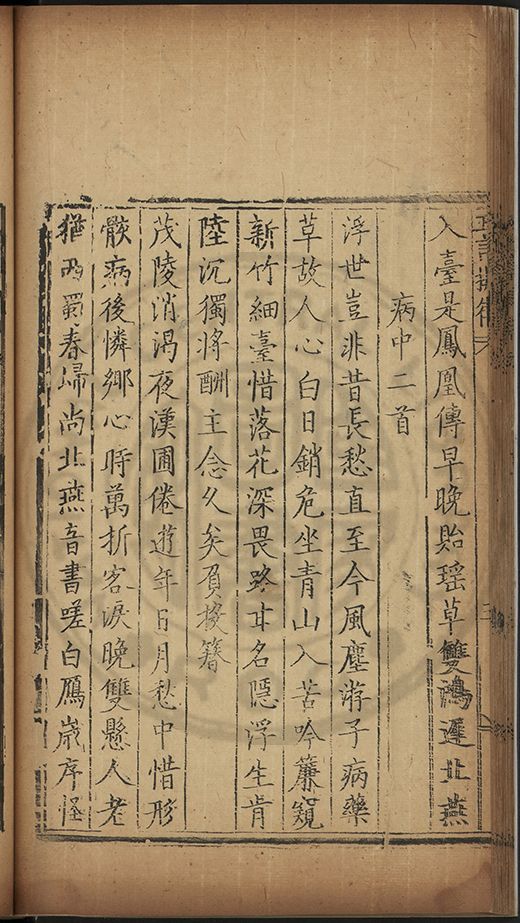 入臺是鳳凰傳早晚貽瑶草雙鴻遲北燕
病中二首
浮世豈非昔長愁直至今風塵游子病藥
草故人心白日銷危坐青山入苦吟簾窺
新竹細臺惜落花深畏路甘名隱浮生肯
陸沉獨將酬主念久矣負揬簪
茂陵消渴夜漢圃倦遊年日月愁中惜形
骸病後憐鄉心時萬折客淚晚雙懸人老
猶西蜀春歸尚北燕音書嗟白鴈歲序怪